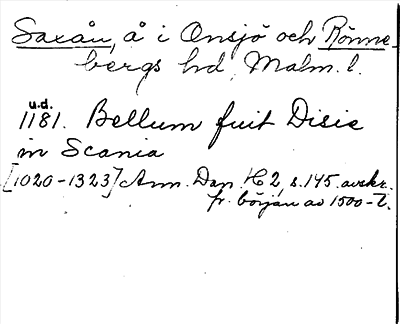 Saxån, å i Onsjö och Rönne-
bergs hd, Malm. l.
u.d.
1181. Bellum fuit Disie
in Scania
[1020-1323] Ann. Dan. H 2, s. 145 avskr.
fr. början av 1500-t.